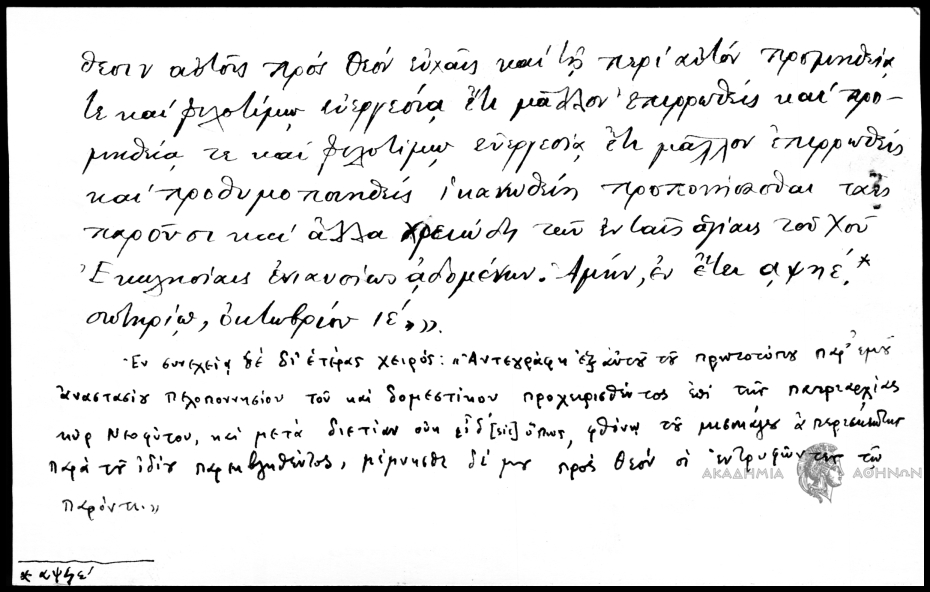 θεσιν αὐτοῖς πρός Θεόν εὐχαῖς καί τῇ περί αὐτόν προμηθείᾳ
τε καί φιλοτίμῳ εὐεργεσίᾳ ἔτι μᾶλλον ἐπιρρωθείς καί προ-
μηθείᾳ τε καί φιλοτίμῳ εὐεργεσίᾳ ἔτι μᾶλλον ἐπιρρωθείς
καί προθυμοποιηθείς ἱκανωθείη προπονήσασθαι ταῖς
παροῦσι καί ἄλλα χρειώδη τῶν ἐν ταῖς ἁγίαις τοῦ Χοῦ
Ἐκκλησίαις ἐνιαυσίως ᾀδομένων. Ἀμήν, ἐν ἔτει αψηέ.*
σωτηρίῳ, ὀκτωβρίου ιέ».
Ἐν συνεχείᾳ δέ δι' ἑτέρας χειρός: «Ἀντεγράφη ἐξ αὐτοῦ τοῦ πρωτοτύπου παρ' ἐμοῦ
ἀναστασίου πελοποννησίου τοῦ καί δομεστίκου προχειρισθέντος ἐπί τῆς πατριαρχίας
κύρ Νεοφύτου, καί μετά διετίαν οὐκ [sic] ὅπως, φθόνῳ τοῦ μισοκάλου
παρά τοῦ ἰδίου παρεμβληθέντος, μέμνησθε δέ μου πρός Θεόν οἱ ἐντρυφῶντες τῷ
παρόντι.»
* αψϟε'
ΑΚΑΔΗΜΙΑ ΑΘΗΝΩΝ